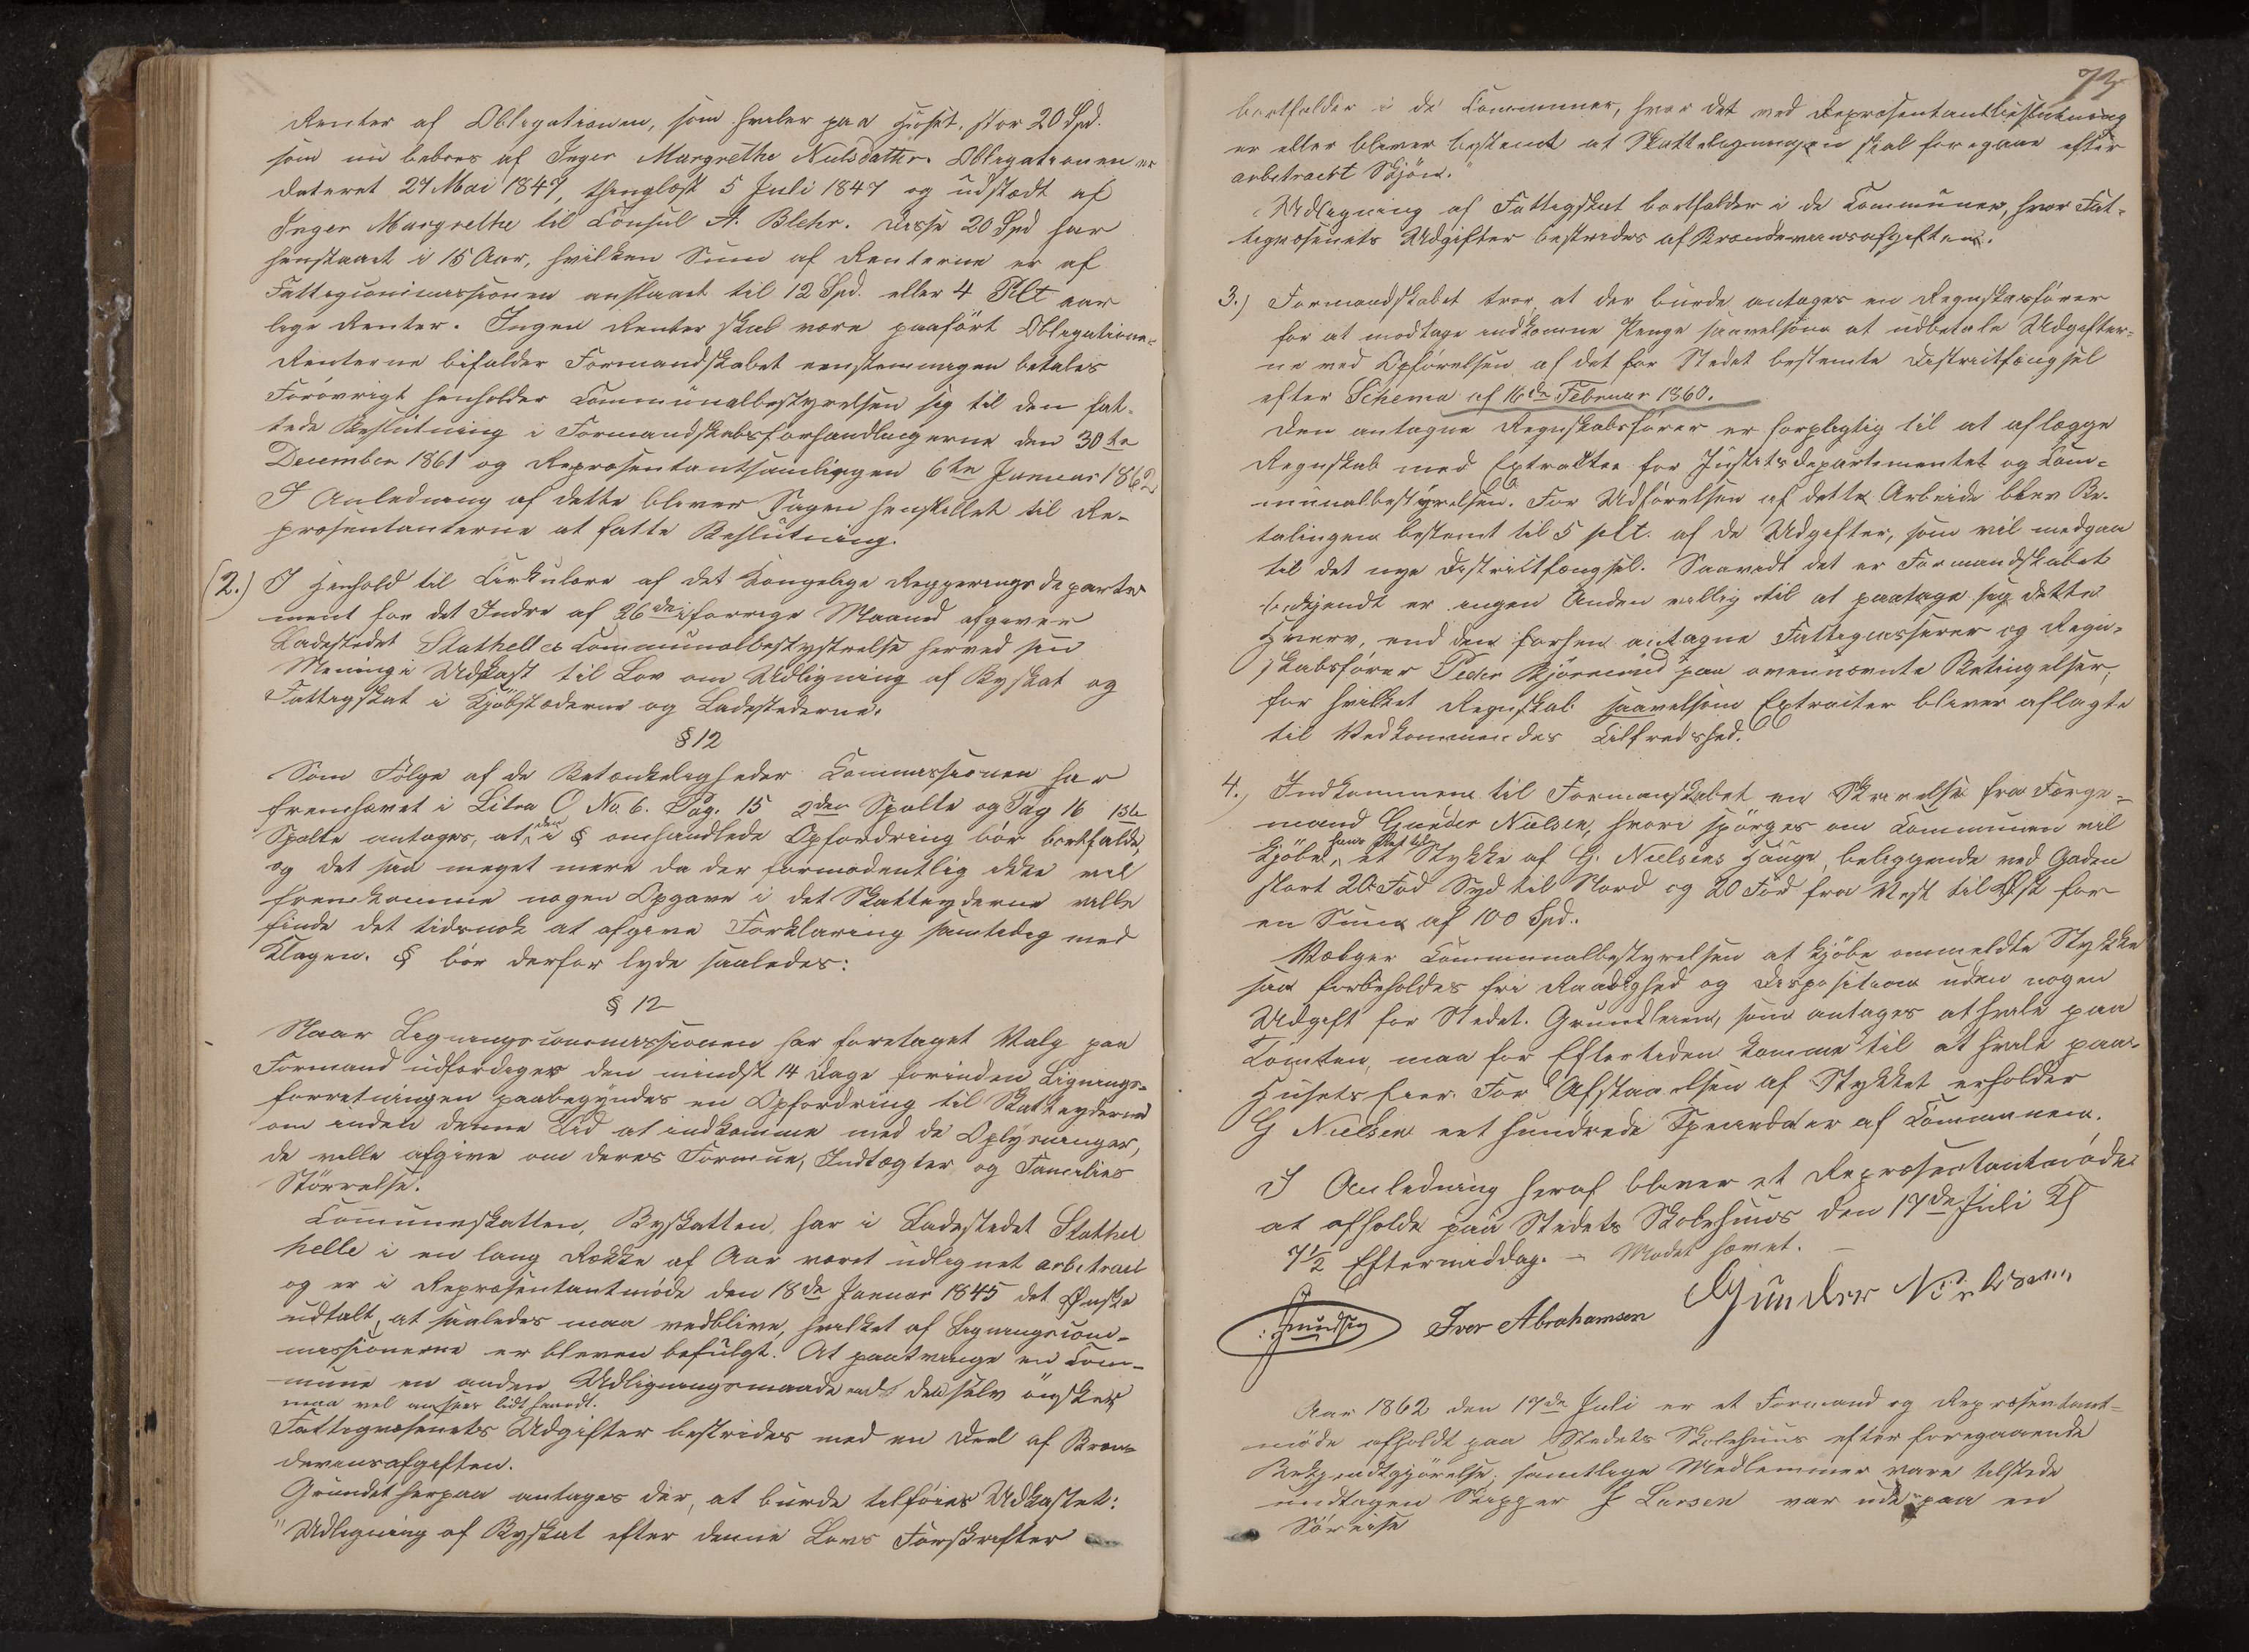 Renter af Obligationen, som hviler paa Huset, stor 20 Spd.
som nu beboes af Inger Margrethe Nielsdatter. Obligationen er
dateret 27 Mai 1847, thinglæst 5 Juli 1847 og udstædt af
Inger Margrethe til Consul A. Blehr. Disse 20 Spd har
henstaaet i 15 Aar, hvilken Sum af Renterne er af
Fattigcommissionen anslaaet til 12 Spd. eller 4 Pct aar
lige Renter. Ingen Renter skal være paaført Obligationen.
Renterne bifalder Formandskabet eenstemmigen betales
Forøvrigt henholder Communalbestyrelsen sig til den fat-
tede Beslutning i Formandskabsforhandlingerne den 30te
December 1861 og Repræsentantsamlingen 6te Januar 1862
I Anledning af dette bliver Sagen henstillet til Re-
præsentanterne at fatte Beslutning.
(2.) I Henhold til Cirkulære af det Kongelige Regjerings departe
ment for det Indre af 26de i forrige Maaned afgiver
Ladestedet Stathelles Communalbestystrelse herved sin
Mening i Udkast til Lov om Udligning af Byskat og
Fattigskat i Kjøbstæderne og Ladestederne.
§ 12
Som Følge af de Betænkeligheder Commissionen har
fremhævet i Litra O No. 6. Pag. 15 2den Spalte og Pag 16 1ste
Spalte antages, at den i § omhandlede Opfordring bør bortfalde,
og det saa meget mere da der formodentlig ikke vil
fremkomme nogen Opgave i det Skatteyderne ville
finde det tidsnok at afgive Forklaring samtidig med
Klagen. § bør derfor lyde saaledes:
§ 12
Naar Ligningscommissionen har foretaget Valg paa
Formand udfærdiges den mindst 14 Dage forinden Lignings-
forretningen paabegyndes en Opfordring til Skatteyderne
om inden denne Tid at indkomme med de Oplysninger,
de ville afgive om deres Formue, Indtægter og Families
Størrelse.
Communeskatten, Byskatten, har i Ladestedet Stathel
helle i en lang Række af Aar været udlignet arbitrair
og er i Repræsentantmøde den 18de Januar 1845 det Ønske
udtalt, at saaledes maa vedblive, hvilket af Ligningscom-
missionerne er bleven befulgt. At paatvinge en Com-
mune en anden Udligningsmaade end den selv ønsker
maa vel ansees lidt haardt.
Fattigvæsenets Udgifter bestrides med en Deel af Bræn-
deviinsafgiften.
Grundet herpaa antages der, at burde tilføies Udkastet:
"Udligning af Byskat efter denne Lovs Forskrifter
73
bortfalder i de Communer, hvor det ved Repræsentantbeslutning
er eller bliver bestemt at Skatteligningen skal foregaae efter
arbitrairt Skjøn."
"Udligning af Fattigskat bortfalder i de Communer, hvor Fat-
tigvæsenets Udgifter bestrides af Brændeviinsafgiften.
3.) Formandskabet troer, at der burde antages en Regnskabsfører
for at modtage indkomne Penge saavelsom at udbetale Udgifter-
ne ved Opførelsen af det for Stedet bestemte Districtfængsel
efter Schema af 16de Februar 1860.
Den antagne Regnskabsfører er forpligtig til at aflægge
Regnskab med Extracter for Justitsdepartementet og Com-
munalbestyrelsen. For Udførelsen af dette Arbeide blev Be-
talingen bestemt til 5 pCt. af de Udgifter, som vil medgaa
til det nye Districtfængsel. Saavidt det er Formandskabet
bekjendt er ingen Anden villig til at paatage sig dette
Hverv, end den forhen antagne Fattigcasserer og Regn-
skabsfører Peder Bjørnerud paa ovennævnte Betingelser,
for hvilket Regnskab saavelsom Extracter bliver aflagte
til Vedkommendes Tilfredshed.
4.) Indkommen til Formanskabet en Skrivelse fra Forge-
mand Gunder Nielsen, hvori spørges om Communen vil
kjøbe et Stykke af G. Nielsens Hauge, beliggende ved Gaden
stort 20 Fod Syd til Nord og 20 Fod fra Vest til Øst for
en Sum af 100 Spd.
Vælger Communalbestyrelsen at kjøbe ommeldte Stykke
saa forbeholdes fri Raadighed og Disposition uden nogen
Udgift for Stedet. Grundleien, som antages at hvile paa
Tomten, maa for Eftertiden komme til at hvile paa
Husets Eier. For Afstaaelsen af Stykket erholder
G Nielsen eet hundrede Speciedaler af Communen.
I Anledning heraf bliver et Repræsentantmøde
at afholde paa Stedets Skolehuus den 17de Juli Kl
7½ Eftermiddag. – Mødet hævet. –
Iver Abrahamsen Gunder Nielsen
Aar 1862 den 17de Juli er et Formand og Repræsentant-
møde afholdt paa Stedets Skolehuus efter foregaaende
Bekjendtgjørelse; samtlige Medlemmer vare tilstede
undtagen Skipper J Larsen var ude paa en
Søreise